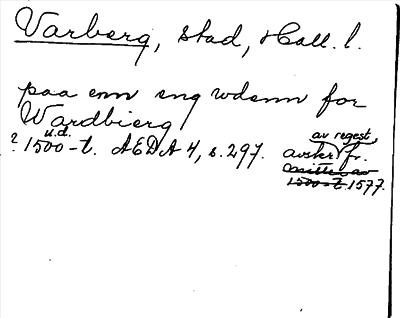 Varberg, stad, Hall. l.
paa enn eng wdenn for
Wardbierg
u.d.
? 1500-t. AEDA 4, s. 297. avskr. fr.
av regest,
mitten av
1500-t. 1577.